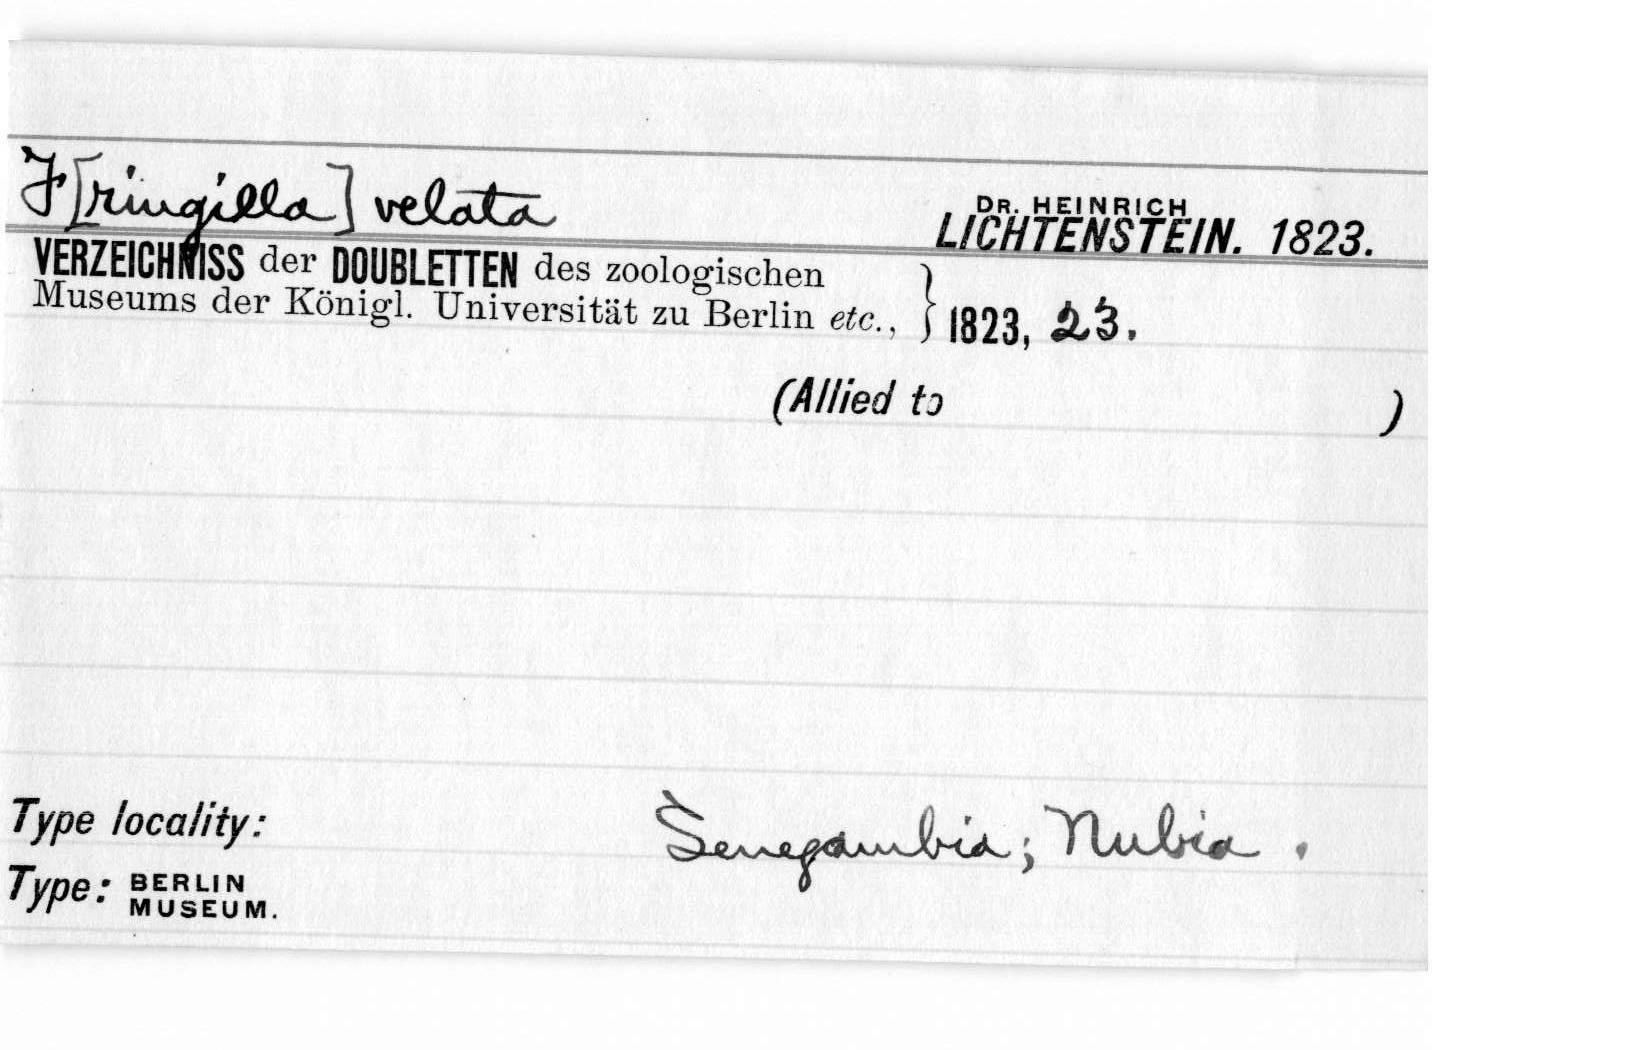 F[ringilla] velata
DR. HEINRICH
LICHTENSTEIN. 1823.
VERZEICHNISS der DOUBLETTEN des zoologischen
Museums der Königl. Universität zu Berlin etc., } 1823, 23.
(Allied to )
Type locality: Senegambia; Nubia.
Type: BERLIN
MUSEUM.